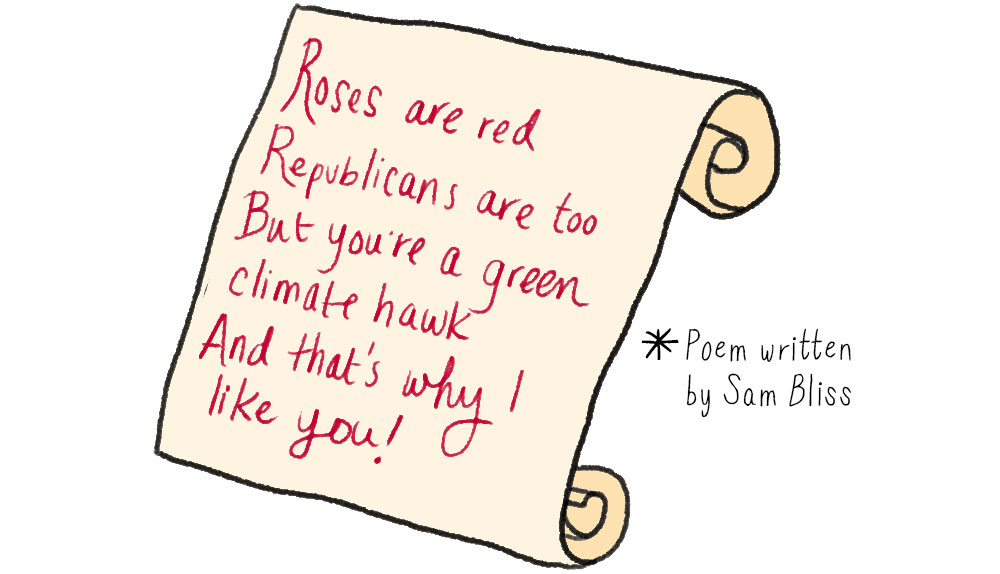 Roses are red
Republicans are too
But you're a green
climate hawk
And that's why I
like you!
* Poem written
by Sam Bliss